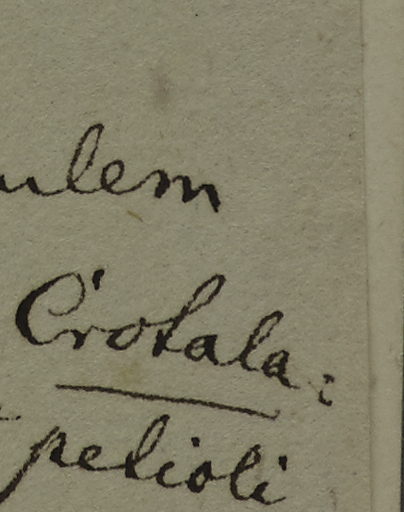 ulem
Crotala:
petioli